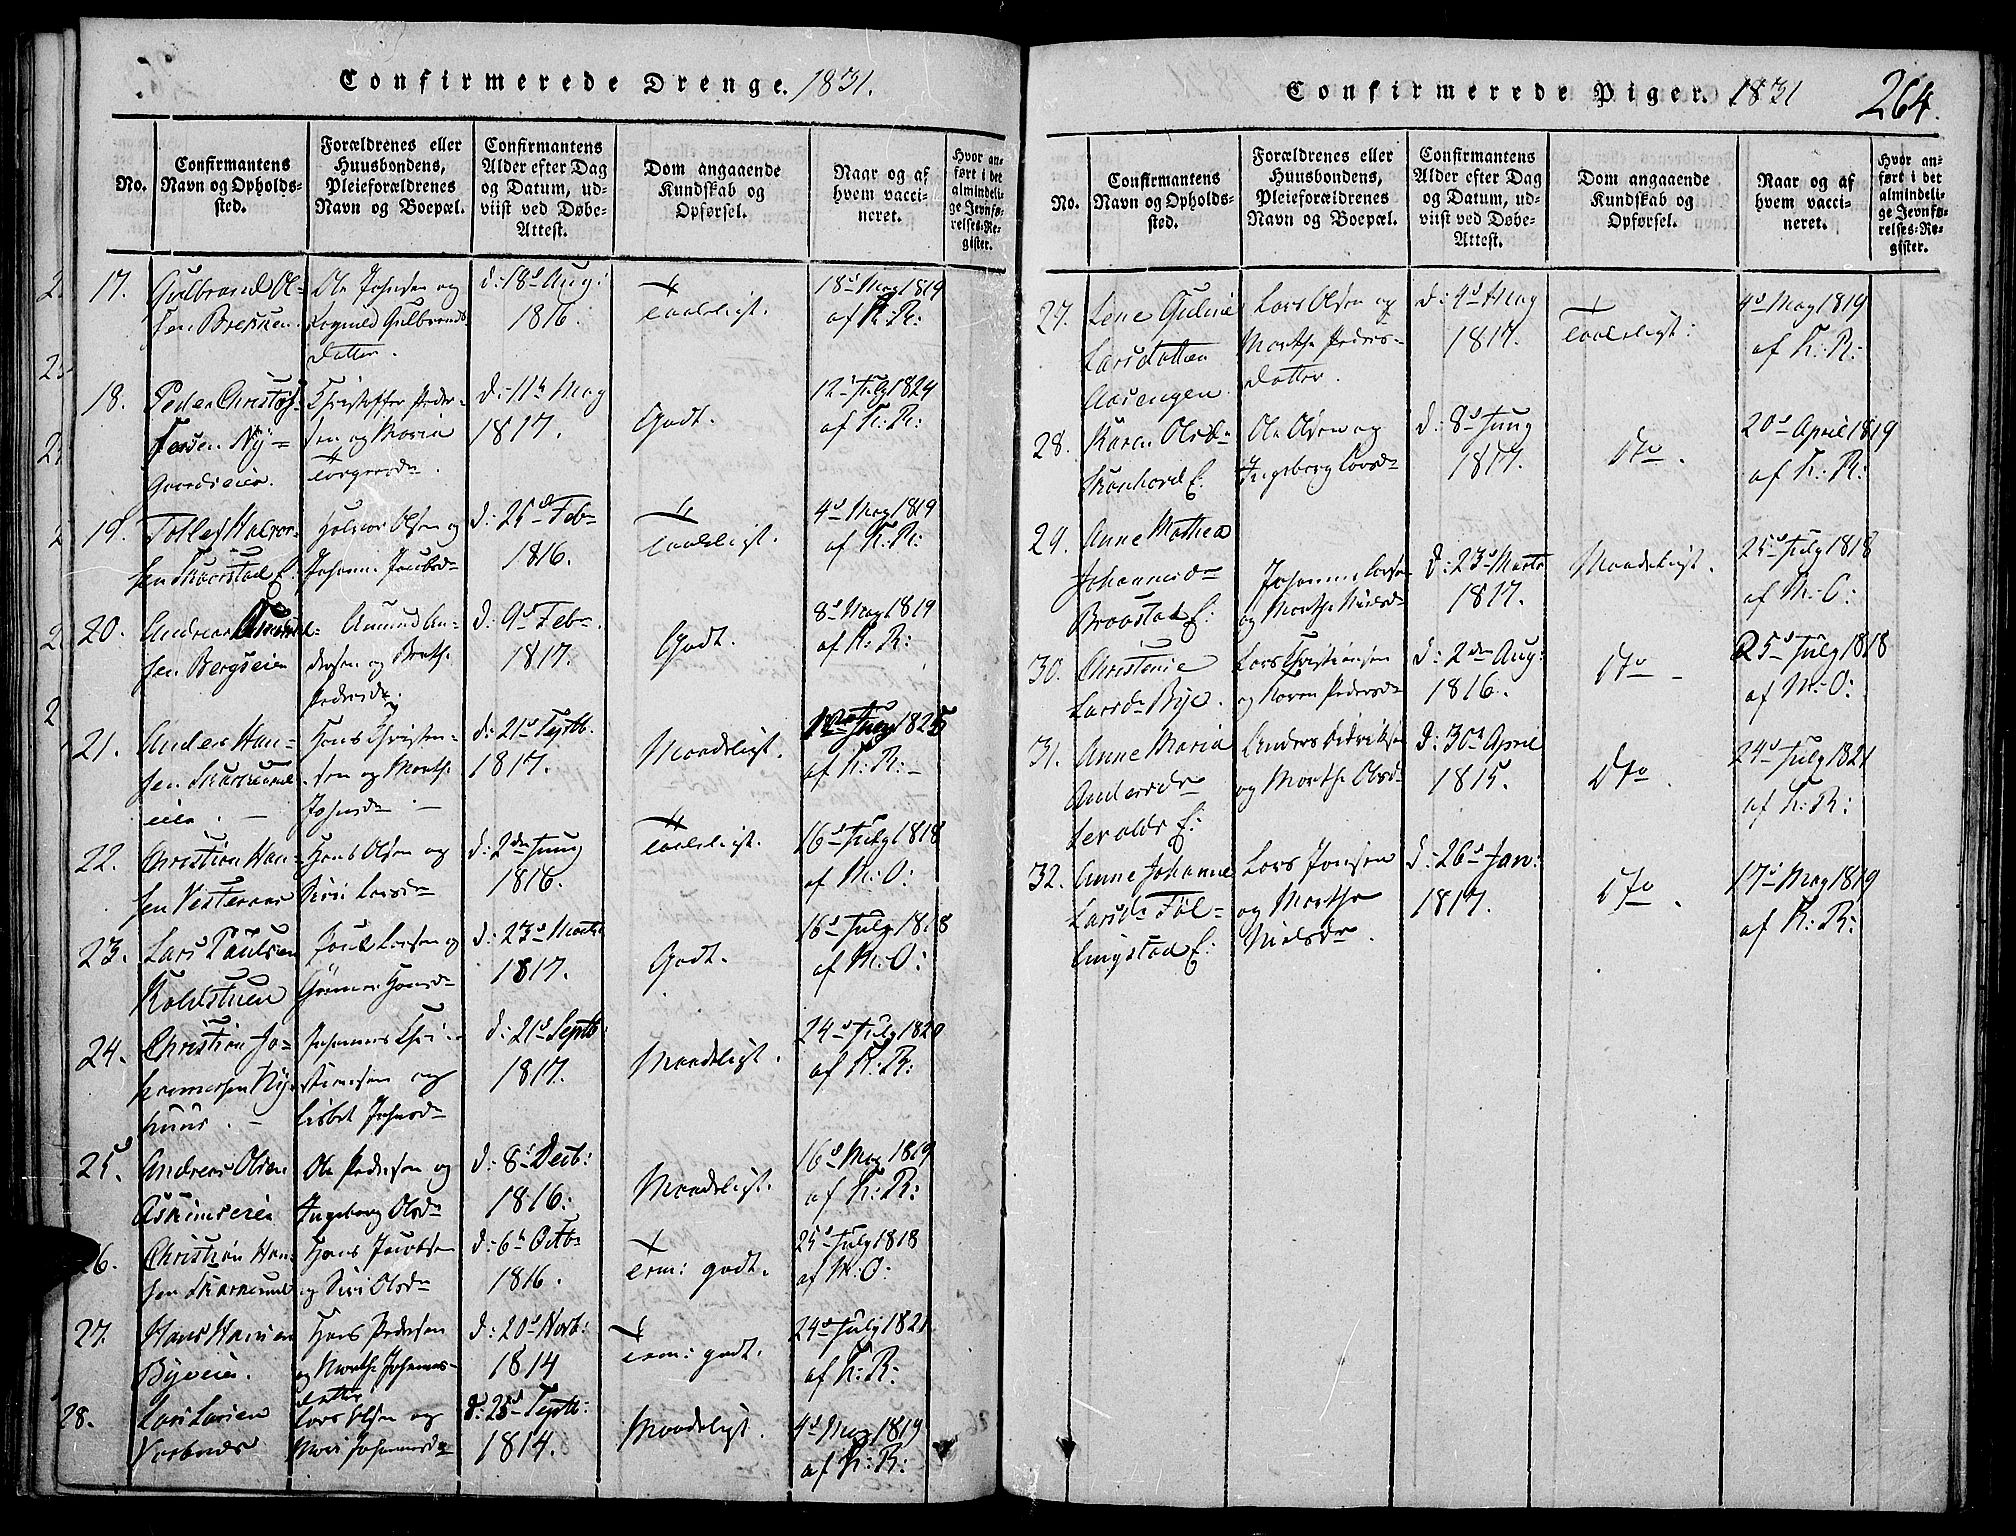 Confirmerede Drenge. 1831.
No.
Confirmantens
Navn og Opholds-
sted.
Forældrenes eller
Huusbondens,
Pleieforældrenes
Navn og Boepæl.
Confirmantens
Alder efter Dag
og Datum, ud-
viist ved Døbe-
Attest.
Dom angaaende
Kundskab og
Opførsel.
Naar og af
hvem vacci-
neret.
Hvor an-
ført i det
almindeli-
ge Jevnfø-
relses-Re-
gister.
17.
Gulbrand Ol-
sen Brekken.
Ole Johnsen og
Gulbrands-
datter.
d: 18d Aug:
1816.
Taaleligt.
18d May 1819
af K: R:
18.
Peder Christof-
fersen Ny-
gaardseien.
Christoffer Peder-
sen og Maria
d: 11te May
1817.
Godt.
12t July 1824
af K: R:
19.
Tollef Halvor-
sen E:
Halvor Olsen og
d: 25d Feb
1816.
Taaleligt.
4d May 1819
af K: R:
20.
Andreas Amund-
sen Bergseien
Amund An-
dersen og Berthe
Pedersdr.
d: 9d Feb.
1817.
Godt.
8d May 1819
af K: R:
21.
Anders Han-
sen
eie. —
Hans Christen-
sen og Marthe
Johnsdr. —
d: 21d Septb.
1817.
Maadeligt.
July 1825
af K: R: —
22.
Christian Han-
sen Vesteraas
Hans Olsen og
Siri Larsdr
d: 2den Juny
1816.
Taaleligt.
16d July 1818
af M: O:
23.
Lars Paulsen
Kalvstuen
Larsen og
Hansdr
d: 23d Marts
1817.
Godt.
16d July 1818
af M: O:
24.
Christian Jo-
hannesen Ny-
huus. —
Johannes Chri-
stiansen og
Lisbet Johnsdr
d: 21d Septb:
1817.
Maadeligt.
24d July 1820
af K: R:
25.
Andreas Olsen
Askimseie
Ole Pedersen og
Ingeborg Olsdr
d: 8d Decb:
1816:
Maadeligt.
16d May 1819
af K: R:
26.
Christian Han-
sen
Hans Jacobsen
og Siri Olsdr
d: 6te Octb
1816.
tem: godt.
25d July 1818
af M: O:
27.
Hans Hansen
Byeeie.
Hans Pedersen
og Marthe Johannes-
datter
d: 20d Novb:
1814
tem: godt.
24d July 1821
af K: R:
28.
Lars Larsen
Lars Olsen og
Mari Johannesdr
d: 25d Septb:
1814.
Maadeligt.
4d May 1819
af K: R:
Confirmerede Piger. 1831
264.
No.
Confirmantens
Navn og Opholds-
sted.
Forældrenes eller
Huusbondens,
Pleieforældrenes
Navn og Boepæl.
Confirmantens
Alder efter Dag
og Datum, ud-
viist ved Døbe-
Attest.
Dom angaaende
Kundskab og
Opførsel.
Naar og af
hvem vacci-
neret.
Hvor an-
ført i det
almindeli-
ge Jevnfø-
relses-Re-
gister.
27.
Lene Guline
Larsdatter
Aasengen
Lars Olsen og
Marthe Peders-
datter.
d: 4d May
1817.
Taaleligt:
4d May 1819
af K: R:
28.
Karen Olsdr
E:
Ole Olsen og
Ingeborg Larsdr
d: 8d Juny
1817.
Dto.
20d April 1819
af K: R:
29.
Anne Mathea
Johannesdr
Braastad E:
Johannes Larsen
og Marthe Nielsdr
d: 23d Marts
1817.
Maadeligt.
25d July 1818
af M: O:
30.
Christenie
Larsdr Bye.
Lars Christiansen
og Karen Pedersdr
d: 2den Aug:
1816.
Dto —
25d July 1818
af M: O:
31.
Anne Maria
Andersdr
E:
Anders Didriksen
og Marthe Olsdr
d: 30d April
1815.
Dto
24d July 1821
af K: R:
32.
Anne Johanne
Larsdr Føl-
lingstad E:
Lars Jonsen
og Marthe
Nielsdr.
d: 26d Jan:
1817.
Dto.
17d May 1819
af K: R: